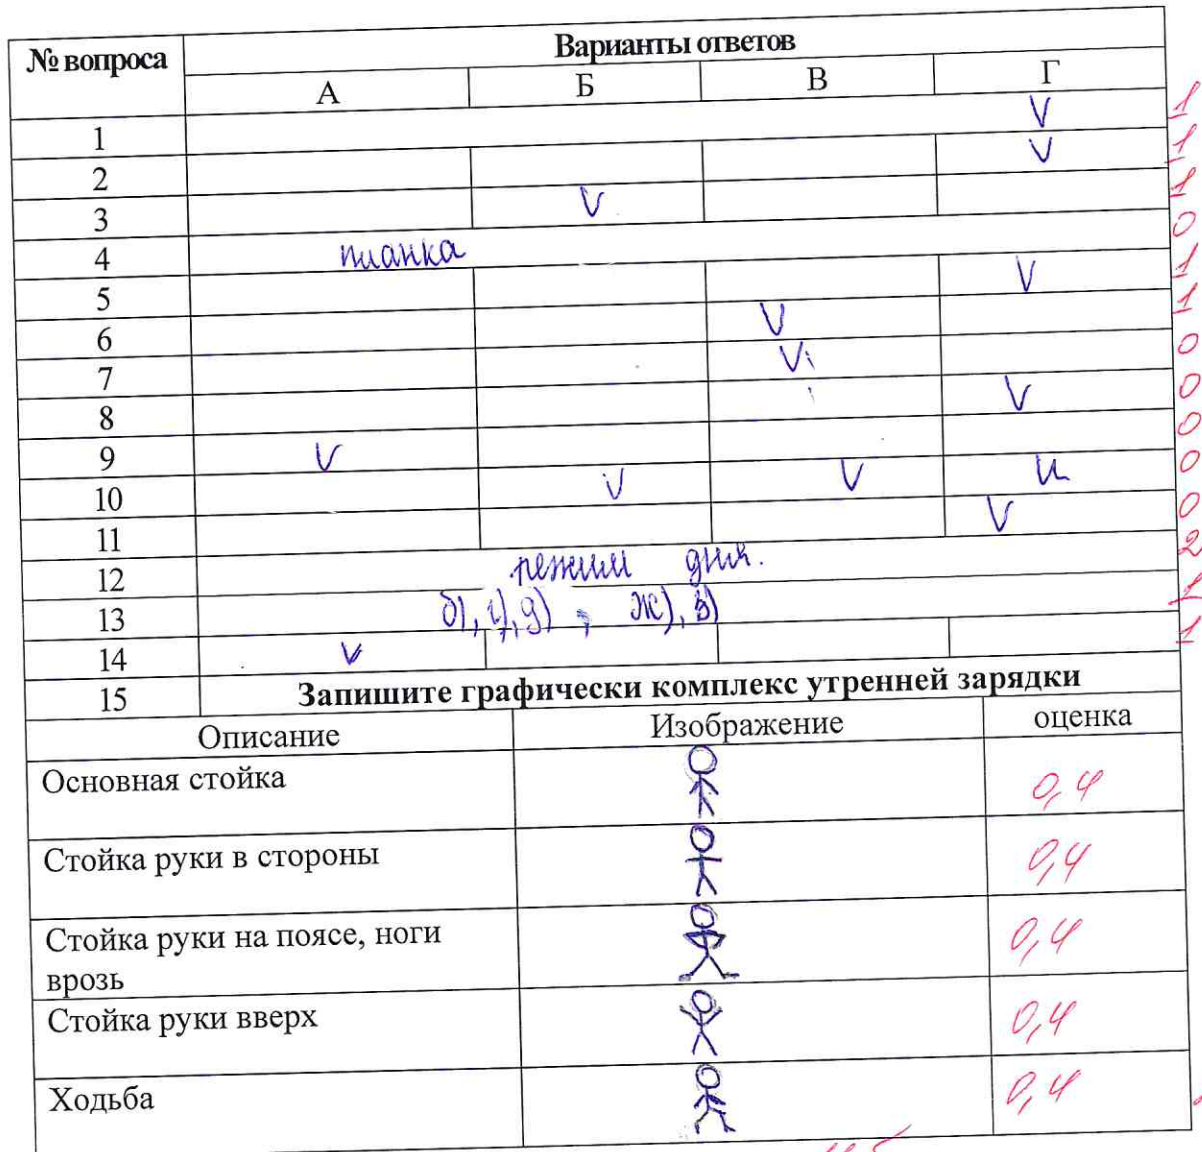 № вопроса Варианты ответов
А Б В Г
1 V 1
2 V 1
3 V 1
4 планка 0
5 V 1
6 V 1
7 V 0
8 V 0
9 V 0
10 V V V 0
11 V 0
12 режим дня. 2
13 б), г), д), ж), з)
14 V 1
15 Запишите графически комплекс утренней зарядки
Описание Изображение оценка
Основная стойка 0,4
Стойка руки в стороны 0,4
Стойка руки на поясе, ноги
врозь 0,4
Стойка руки вверх 0,4
Ходьба 0,4